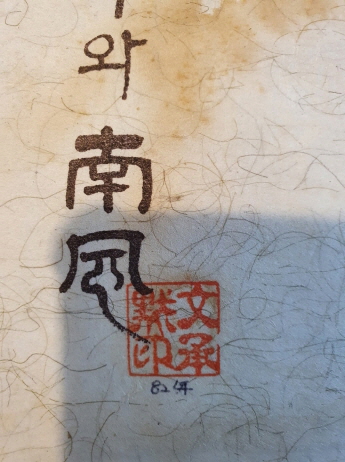 와
南
風
文承
印
82年